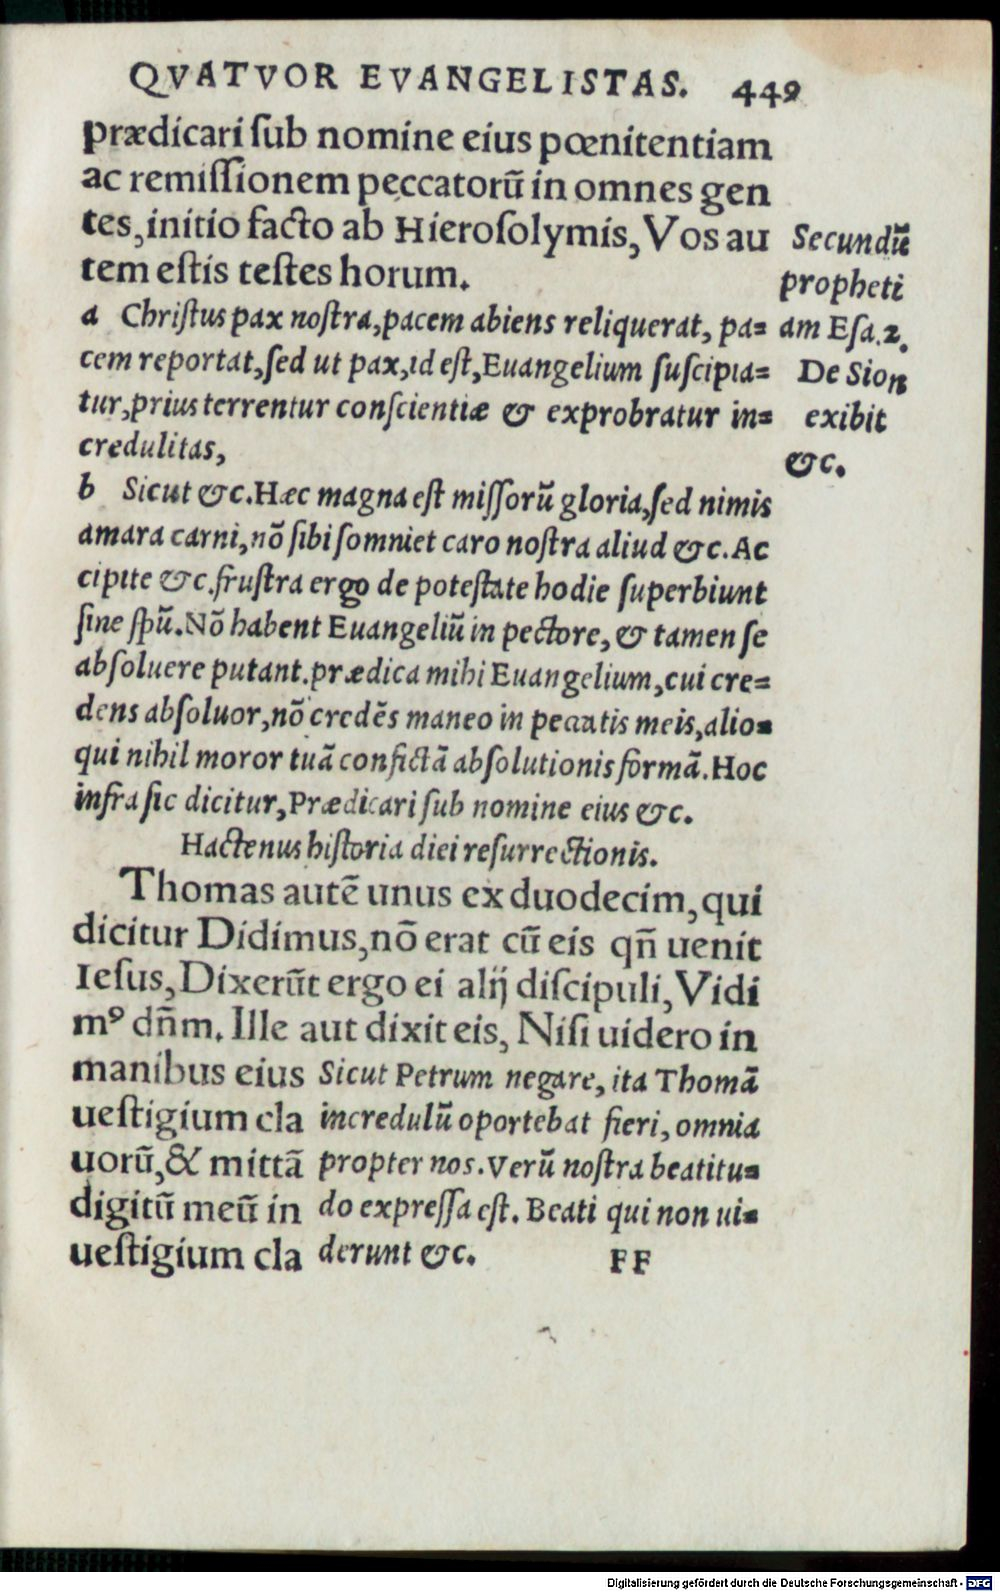 QVATVOR EVANGELISTAS. 449
prædicari ſub nomine eius pœnitentiam
ac remiſſionem peccatorũ in omnes gen
tes, initio facto ab Hieroſolymis, Vos au
tem eſtis teſtes horum.
Secundũ
propheti
am Eſa.2.
De Sion
exibit
&c.
a Chriſtus pax noſtra, pacem abiens reliquerat, pa=
cem reportat, ſed ut pax, id eſt, Euangelium ſuſcipia=
tur, prius terrentur conſcientiæ & exprobratur in=
credulitas,
b Sicut &c. Hæc magna eſt miſſorũ gloria, ſed nimis
amara carni, nõ ſibi ſomniet caro noſtra aliud &c. Ac
cipite &c. fruſtra ergo de poteſtate hodie ſuperbiunt
ſine ſpũ. Nõ habent Euangeliũ in pectore, & tamen ſe
abſoluere putant. prædica mihi Euangelium, cui cre=
dens abſoluor, nõ credẽs maneo in peccatis meis, alio=
qui nihil moror tuã confictã abſolutionis formã. Hoc
infra ſic dicitur, Prædicari ſub nomine eius &c.
Hactenus hiſtoria diei reſurrectionis.
Thomas autẽ unus ex duodecim, qui
dicitur Didimus, nõ erat cũ eis qñ uenit
Ieſus, Dixerũt ergo ei alij diſcipuli, Vidi
mꝰ dñm. Ille aut dixit eis, Niſi uidero in
manibus eius
ueſtigium cla
uorũ, & mittã
digitũ meũ in
ueſtigium cla
Sicut Petrum negare, ita Thomã
incredulũ oportebat fieri, omnia
propter nos. Verũ noſtra beatitu=
do expreſſa eſt. Beati qui non ui=
derunt &c.
FF
Digitalisierung gefördert durch die Deutsche Forschungsgemeinschaft - DFG